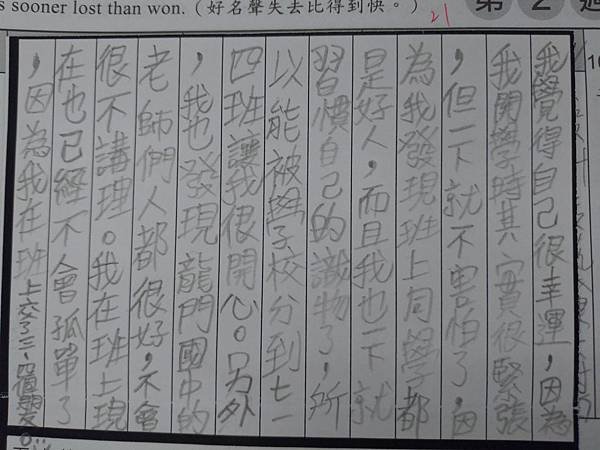 s sooner lost than won.（好名聲失去比得到快。）
21
第2週
我覺得自己很幸運，因為
我開學時其實很緊張
，但一下就不害怕了，因
為我發現班上同學都
是好人，而且我也一下就
習慣自己的識物了，所
以能被學校分到七一
四班讓我很開心。另外
，我也發現龍門國中的
老師們人都很好，不會
很不講理。我在班上現
在也已經不會孤單了
，因為我在班上交了三、四個朋友。